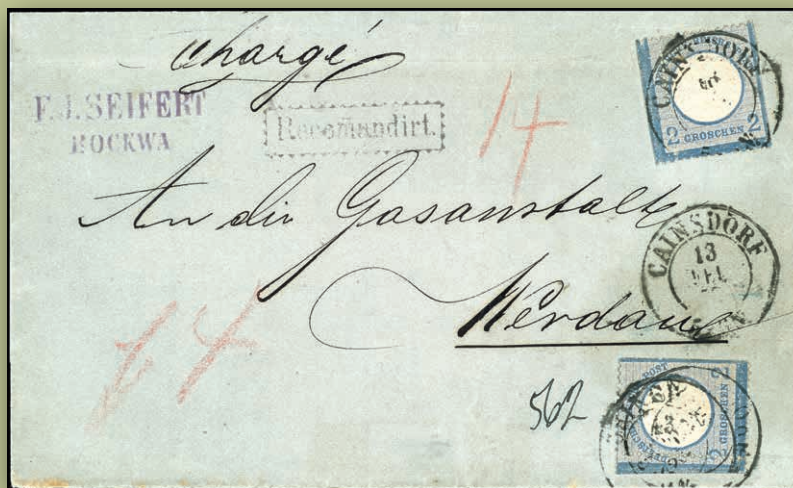 chargé
F. J. SEIFERT
BOCKWA
Recomandirt.
14
CAINSDORF
2 GROSCHEN 2
An die Gasanstalt
Werdau
CAINSDORF
13
DEC
562
POST
2 GROSCHEN 2
13